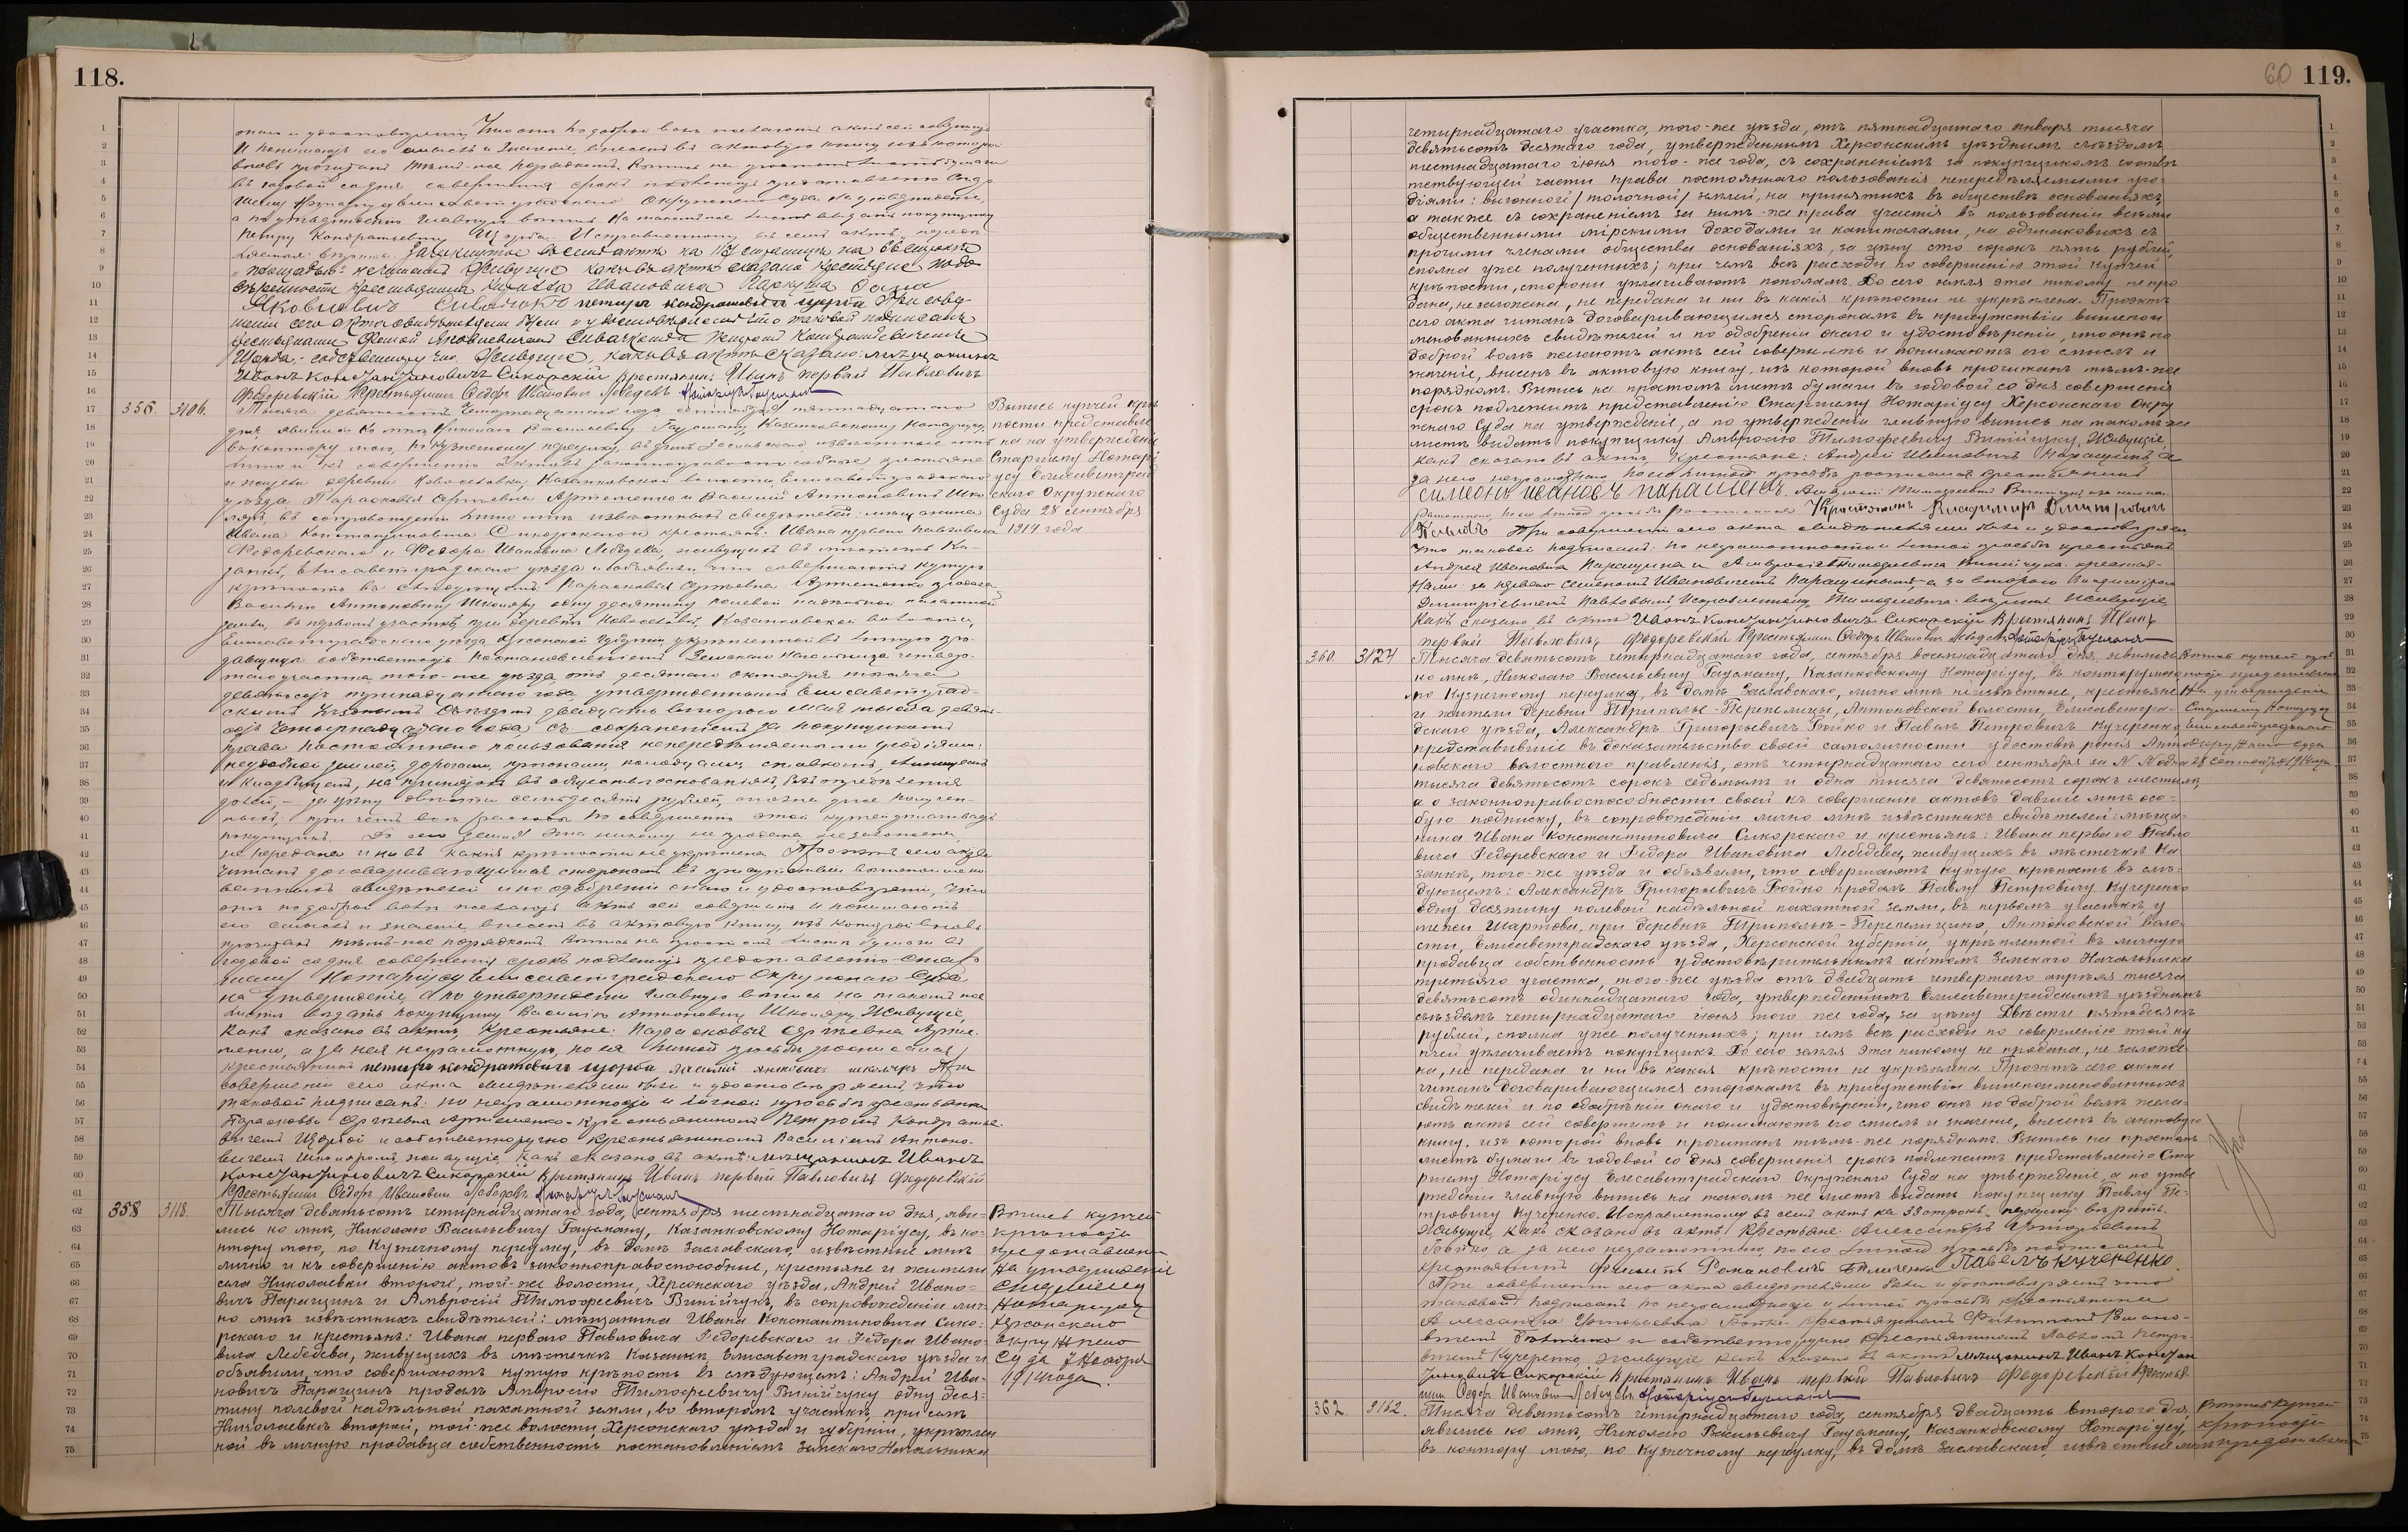 118.
онаго и удостоверении, что они по доброй воле желают акт сей совершить
и понимают его смысл и значение, внесен в актовую книгу, из которой
вновь прочитан тем-же порядком. Выпись на простом листе бумаги
в годовой со дня совершения срок подлежит представлению Стар-
шему Нотариусу Елисаветградского Окружного Суда на утверждение,
а по утверждении главную выпись на таком-же листе выдать покупщику
Петру Кондратьевичу Щерба. Исправленному в сем акте
Яковлевич Сивачокъ петиръ кондратовичъ щерба При совер-
шении сего акта свидетелями были и удостоверяем, что таковой подписан
крестьянами Фомой Яковлевичем Сивачком и Петром Кондратьевичем
Щерба, собственноручно. Живущие, как в акте сказано: мѣщанинъ
Иванъ Константиновичъ Сикорскій Крестьянинъ Иванъ первый Павловичъ
Федоревскій Крестьянинъ Федоръ Ивановичъ Лебедевъ Нотаріусъ Гаусманъ
356. 3106. Тысяча девятьсотъ четырнадцатаго года, сентября пятнадцатаго
дня, явились ко мнѣ, Николаю Васильевичу Гаусману, Казанковскому Нотаріусу,
въ контору мою, по Кузнечному переулку, въ домѣ Заславскаго, извѣстные мнѣ
лично и къ совершенію актовъ законноправоспособные, крестьяне
и жители деревни Новоселовки, Казанковской волости, Елисаветградскаго
уѣзда, Парасковья Сергѣевна Артеменко и Василій Антоновичъ Шко-
ляръ, въ сопровожденіи лично мнѣ извѣстныхъ свидѣтелей: мѣщанина
Ивана Константиновича Сикорскаго и крестьянъ: Ивана перваго Павловича
Федоревскаго и Федора Ивановича Лебедева, живущихъ въ мѣстечкѣ Ка-
занкѣ, Елисаветградскаго уѣзда и объявили, что совершаютъ купчую
крѣпость въ слѣдующемъ: Парасковья Сергѣевна Артеменко продала
Василію Антоновичу Школяру одну десятину полевой надѣльной пахатной
земли, въ первомъ участкѣ, при деревнѣ Новоселовкѣ, Казанковской волости,
Елисаветградскаго уѣзда, Херсонской губерніи, укрѣпленной въ личную про-
давщицы собственность постановленіемъ Земскаго Начальника четвер-
таго участка, того-же уѣзда, отъ десятаго октября тысяча
девятьсотъ тринадцатаго года, утвержденнымъ Елисаветград-
скимъ Уѣзднымъ Съѣздомъ двадцать второго мая тысяча девять-
сотъ четырнадцатаго года, съ сохраненіемъ за покупщикомъ
права постояннаго пользованія непередѣляемыми угодіями:
неудобной землей, дорогами,
и кладбищемъ, на принятыхъ въ обществѣ основаніяхъ,
за цѣну двѣсти семьдесятъ рублей, сполна уже получен-
ныхъ; при чемъ всѣ расходы по совершенію этой купчей уплачиваетъ
покупщикъ. До сего земля эта никому не продана, не заложена,
не передана и ни въ какія крѣпости не укрѣплена. Проэктъ сего акта
читанъ договаривающимся сторонамъ въ присутствіи вышепоимено-
ванныхъ свидѣтелей и по одобреніи онаго и удостовѣреніи, что
они по доброй волѣ желаютъ актъ сей совершить и понимаютъ
его смыслъ и значеніе, внесенъ въ актовую книгу, изъ которой вновь
прочитанъ тѣмъ-же порядкомъ. Выпись на простомъ листѣ бумаги въ
годовой со дня совершенія срокъ подлежитъ представленію Стар-
шему Нотаріусу Елисаветградскаго Окружнаго Суда
на утвержденіе, а по утвержденіи главную выпись на такомъ же
листѣ выдать покупщику Василію Антоновичу Школяру. Живущіе,
какъ сказано въ актѣ, Крестьяне: Парасковья Сергѣевна Арте-
менко, а за нея неграмотную, по ея личной просьбѣ росписался
крестьянинъ петиръ кондратовичъ щерба василій антовичъ школяръ При
совершеніи сего акта свидѣтелями были и удостовѣряемъ, что
таковой подписанъ: по неграмотности и личной просьбѣ крестьянки
Парасковьи Сергѣевны Артеменко- крестьяниномъ Петромъ Кондратье-
вичемъ Щербой и собственноручно крестьяниномъ Василіемъ Антоно-
вичемъ Школяромъ, живущіе, какъ сказано въ актѣ: мѣщанинъ Иванъ
Константиновичъ Сикорскій Крестьянинъ Иванъ первый Павловичъ Федоревскій
Крестьянинъ Федоръ Ивановичъ Лебедевъ. Нотаріусъ Гаусманъ
Выпись купчей крѣ-
пости представле-
на на утвержденіе
Старшему Нотарі-
усу Елисаветград-
скаго Окружнаго
Суда 28 сентября
1914 года
358 3118. Тысяча девятьсотъ четырнадцатаго года, сентября шестнадцатаго дня, яви-
лись ко мнѣ, Николаю Васильевичу Гаусману, Казанковскому Нотаріусу, въ ко-
нтору мою, по Кузнечному переулку, въ домѣ Заславскаго, извѣстные мнѣ
лично и къ совершенію актовъ законноправоспособные, крестьяне и жители
села Николаевки второй, той-же волости, Херсонскаго уѣзда, Андрей Ивано-
вичъ Паращинъ и Амвросій Тимофеевичъ Винійчукъ, въ сопровожденіи лич-
но мнѣ извѣстныхъ свидѣтелей: мѣщанина Ивана Константиновича Сико-
рскаго и крестьянъ: Ивана перваго Павловича Федоревскаго и Федора Ивано-
вича Лебедева, живущихъ въ мѣстечкѣ Казанкѣ, Елисаветградскаго уѣзда и
объявили, что совершаютъ купчую крѣпость въ слѣдующемъ: Андрей Ива-
новичъ Паращинъ продалъ Амвросію Тимофеевичу Винійчуку одну деся-
тину полевой надѣльной пахатной земли, въ второмъ участкѣ, при селѣ
Николаевкѣ второй, той-же волости, Херсонскаго уѣзда и губерніи, укрѣплен
ной въ личную продавца собственность постановленіемъ Земскаго Начальника
Выпись купчей
крѣпости
представлена
на утвержденіе
Старшему
Нотаріусу
Херсонскаго
Окружнаго
Суда 7 Ноября
1914 года.
60 119.
четырнадцатаго участка, того-же уѣзда, отъ пятнадцатаго января тысяча
девятьсотъ десятаго года, утвержденнымъ Херсонскимъ уѣзднымъ съѣздомъ
шестнадцатаго іюня того-же года, съ сохраненіемъ за покупщикомъ соотвѣ
тствующей части права постояннаго пользованія непередѣляемыми уго-
діями: выгонной/толочной/землей, на принятыхъ въ обществѣ основаніяхъ,
а также съ сохраненіемъ за нимъ-же права участія въ пользованіи всѣми
общественными мірскими доходами и капиталами, на одинаковыхъ съ
прочими членами общества основаніяхъ, за цѣну сто сорокъ пять рублей,
сполна уже полученныхъ; при чемъ всѣ расходы по совершенію этой купчей
крѣпости, стороны уплачиваютъ пополамъ. До сего земля эта никому не про
дана, не заложена, не передана и ни въ какія крѣпости не укрѣплена. Проэктъ
сего акта читанъ договаривающимся сторонамъ въ присутствіи вышепои
менованныхъ свидѣтелей и по одобреніи онаго и удостовѣреніи, что онѣ по
доброй волѣ желаютъ актъ сей совершить и понимаютъ его смыслъ и
значеніе, внесенъ въ актовую книгу, изъ которой вновь прочитанъ тѣмъ-же
порядкомъ. Выпись на простомъ листѣ бумаги въ годовой со дня совершенія
срокъ подлежитъ представленію Старшему Нотаріусу Херсонскаго Окру
жнаго Суда на утвержденіе, а по утвержденіи главную выпись на такомъ же
листѣ выдать покупщику Амвросію Тимофеевичу Винійчуку. Живущіе,
какъ сказано въ актѣ, крестьяне: Андрей Ивановичъ Паращинъ, а
за него неграмотнаго по его личной просьбѣ росписался крестьянинъ
симеонъ ивановъ паращенъ. Амвросій Тимофеевичъ Винійчукъ, а за него негра
мотнаго, по его личной просьбѣ росписался Крестьянинъ Владимиръ Дмитровичъ
При совершеніи сего акта свидѣтелями были и удостовѣряемъ,
что таковой подписанъ: по неграмотности и личной просьбѣ крестьянъ
Андрея Ивановича Паращина и Амвросія Тимофеевича Винійчука- крестья-
нами: за перваго Семеномъ Ивановичемъ Паращинымъ, а за второго Владиміромъ
Дмитріевичемъ Павловымъ, Исправленному, Тимофеевича- вѣрить. Живущіе,
какъ сказано въ актѣ Иванъ Константиновичъ Сикорскій Крестьянинъ Иванъ
первый Павловичъ Федоревскій Крестьянинъ Федоръ Ивановичъ Лебедевъ Нотаріусъ Гаусманъ
360. 3124 Тысяча девятьсотъ четырнадцатаго года, сентября восемнадцатаго дня, явились
ко мнѣ, Николаю Васильевичу Гаусману, Казанковскому Нотаріусу, въ контору мою,
по Кузнечному переулку, въ домѣ Заславскаго, лично мнѣ неизвѣстные, крестьяне
и жители деревни Триполье-Перепелицы, Антоновской волости, Елисаветгра-
дскаго уѣзда, Александръ Григорьевичъ Бойко и Павелъ Петровичъ Кучеренко,
представившіе въ доказательство своей самоличности удостовѣренія Анто
новскаго волостного правленія, отъ четырнадцатаго сего сентября за №№ одна
тысяча девятьсотъ сорокъ седьмымъ и одна тысяча девятьсотъ сорокъ шестымъ,
а о законноправоспособности своей къ совершенію актовъ давшіе мнѣ осо-
бую подписку, въ сопровожденіи лично мнѣ извѣстныхъ свидѣтелей: мѣща-
нина Ивана Константиновича Сикорскаго и крестьянъ: Ивана перваго Павло
вича Федоревскаго и Федора Ивановича Лебедева, живущихъ въ мѣстечкѣ Ка-
занкѣ, того-же уѣзда и объявили, что совершаютъ купчую крѣпость въ слѣ-
дующемъ: Александръ Григорьевичъ Бойко продалъ Павлу Петровичу Кучеренко
одну десятину полевой надѣльной пахатной земли, въ первомъ участкѣ, у
межи Шартова, при деревнѣ Триполье-Перепелицыно, Антоновской воло-
сти, Елисаветградскаго уѣзда, Херсонской губерніи, укрѣпленной въ личную
продавца собственность удостовѣрительнымъ актомъ Земскаго Начальника
третьяго участка, того-же уѣзда отъ двадцать четвертаго апрѣля тысяча
девятьсотъ одиннадцатаго года, утвержденнымъ Елисаветградскимъ уѣзднымъ
съѣздомъ четырнадцатаго іюня того же года, за цѣну Двѣсти пятьдесятъ
рублей, сполна уже полученныхъ; при чемъ всѣ расходы по совершенію этой ку
пчей уплачиваетъ покупщикъ. До сего земля эта никому не продана, не заложе-
на, не передана и ни въ какія крѣпости не укрѣплена. Проэктъ сего акта
читанъ договаривающимся сторонамъ въ присутствіи вышепоименованныхъ
свидѣтелей и по одобреніи онаго и удостовѣреніи, что онѣ по доброй волѣ жела-
ютъ актъ сей совершить и понимаютъ его смыслъ и значеніе, внесенъ въ актовую
книгу, изъ которой вновь прочитанъ тѣмъ-же порядкомъ. Выпись на простомъ
листѣ бумаги въ годовой со дня совершенія срокъ подлежитъ представленію Ста
ршему Нотаріусу Елисаветградскаго Окружнаго Суда на утвержденіе, а по утве
ржденіи главную выпись на такомъ-же листѣ выдать покупщику Павлу Пе-
тровичу Кучеренко. Исправленному въ семъ актѣ на 33 строкѣ "переулку" вѣрить.
Живущіе, какъ сказано въ актѣ, Крестьяне: Александръ Григорьевичъ
Бойко, а за него неграмотнаго, по его личной просьбѣ подписался
крестьянинъ Филиппъ Романовичъ Павелъ Кучеренко.
При совершеніи сего акта свидѣтелями были и удостовѣряемъ, что
таковой подписанъ по неграмотности и личной просьбѣ крестьянина
Александра Григорьевича Бойко- крестьяниномъ Филиппомъ Романо-
вичемъ и собственноручно крестьяниномъ Павломъ Петро-
вичемъ Кучеренко, живущіе, какъ сказано въ актѣ мѣщанинъ Иванъ Констан
тиновичъ Сикорскій Крестьянинъ Иванъ первый Павловичъ Федоревскій Крестья-
нинъ Федоръ Ивановичъ Лебедевъ. Нотаріусъ Гаусманъ
Выпись купчей крѣ
пости представлена
на утвержденіе
Старшему Нотаріусу
Елисаветградскаго
Окружнаго Суда
28 Сентября 1914 года
362. 3162. Тысяча девятьсотъ четырнадцатаго года, сентября двадцать второго дня,
явились ко мнѣ, Николаю Васильевичу Гаусману, Казанковскому Нотаріусу,
въ контору мою, по Кузнечному переулку, въ домѣ Заславскаго, извѣстные мнѣ
Выпись купчей
крѣпости
представлена